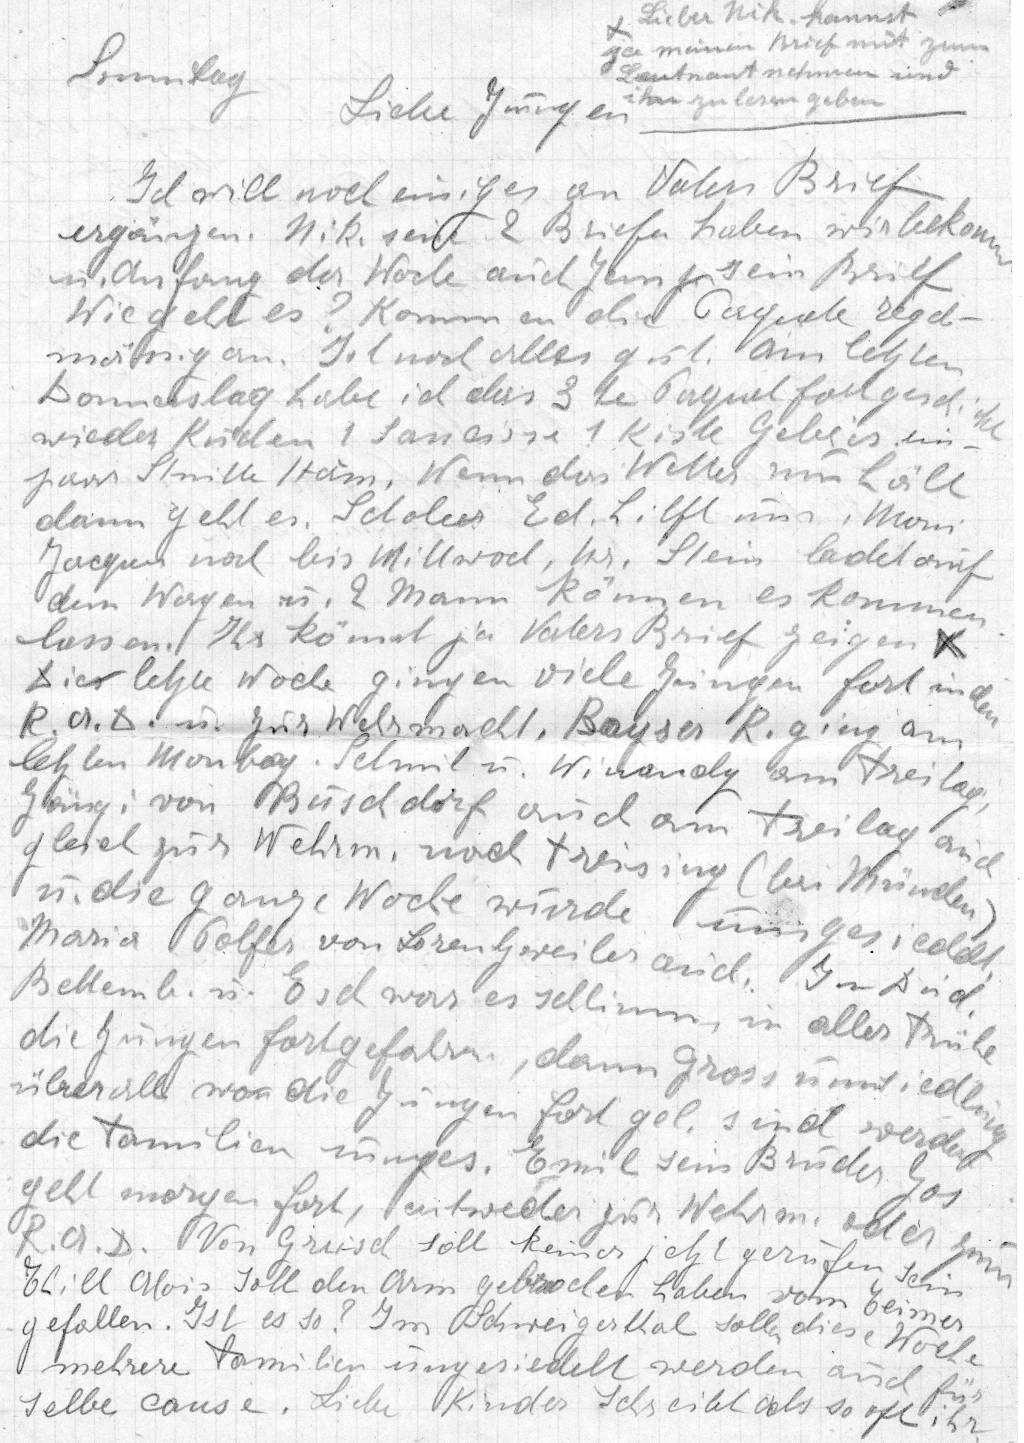 x Lieber Nik. kannst
ja meinen Brief mit zum
Leutnant nehmen und
ihn zu lesen geben
Sonntag
Liebe Jungen
Ich will noch einiges an Vaters Brief
ergänzen. Nik. seine 2 Briefe haben wir bekomm
u. Anfang der Woche auch sein Brief
Wie geht es? Kommen die Paquete regel-
mässig an. Ist noch alles gut. Am letzten
Donnerstag habe ich das 3te Paquet fortgeschickt
wieder Kuchen 1 Saucisse 1 Kiste Gebäck ein
paar Stücke Ham. Wenn das Wetter nun hält
dann geht es. Ed. hilft uns. Mom
Jacques noch bis Mittwoch, Hr. Stein ladet auf
dem Wagen u. 2 Mann können es kommen
lassen. Ihr könnt ja Vaters Brief zeigen x
Die letzte Woche gingen viele Jungen fort in den
R.A.D. u. zur Wehrmacht. Bayser R. ging am
letzten Montag. Schmit u. Winandy am Freitag,
Jängi von Buschdorf auch am Freitag auch
gleich zur Wehrm. nach Freising (bei München)
u. die ganze Woche wurde umgesiedelt.
Maria Polfer von Lorentzweiler auch. In Düd.
Bettemb. u. Esch war es schlimm, in aller Frühe
die Jungen fortgefahren, dann Gross umsiedlung
überall wo die Jungen fort gel. sind werden
die Familien umges. Emil sein Bruder Jos
geht morgen fort, entweder zur Wehrm. oder zum
R.A.D. Von Greisch soll keiner jetzt gerufen sein
Thill Alois soll den Arm gebrochen haben vom Eimer
gefallen. Ist es so? Im Schweigerthal sollen diese Woche
mehrere Familien umgesiedelt werden auch für
selbe cause. Liebe Kinder schreibt als so oft ihr